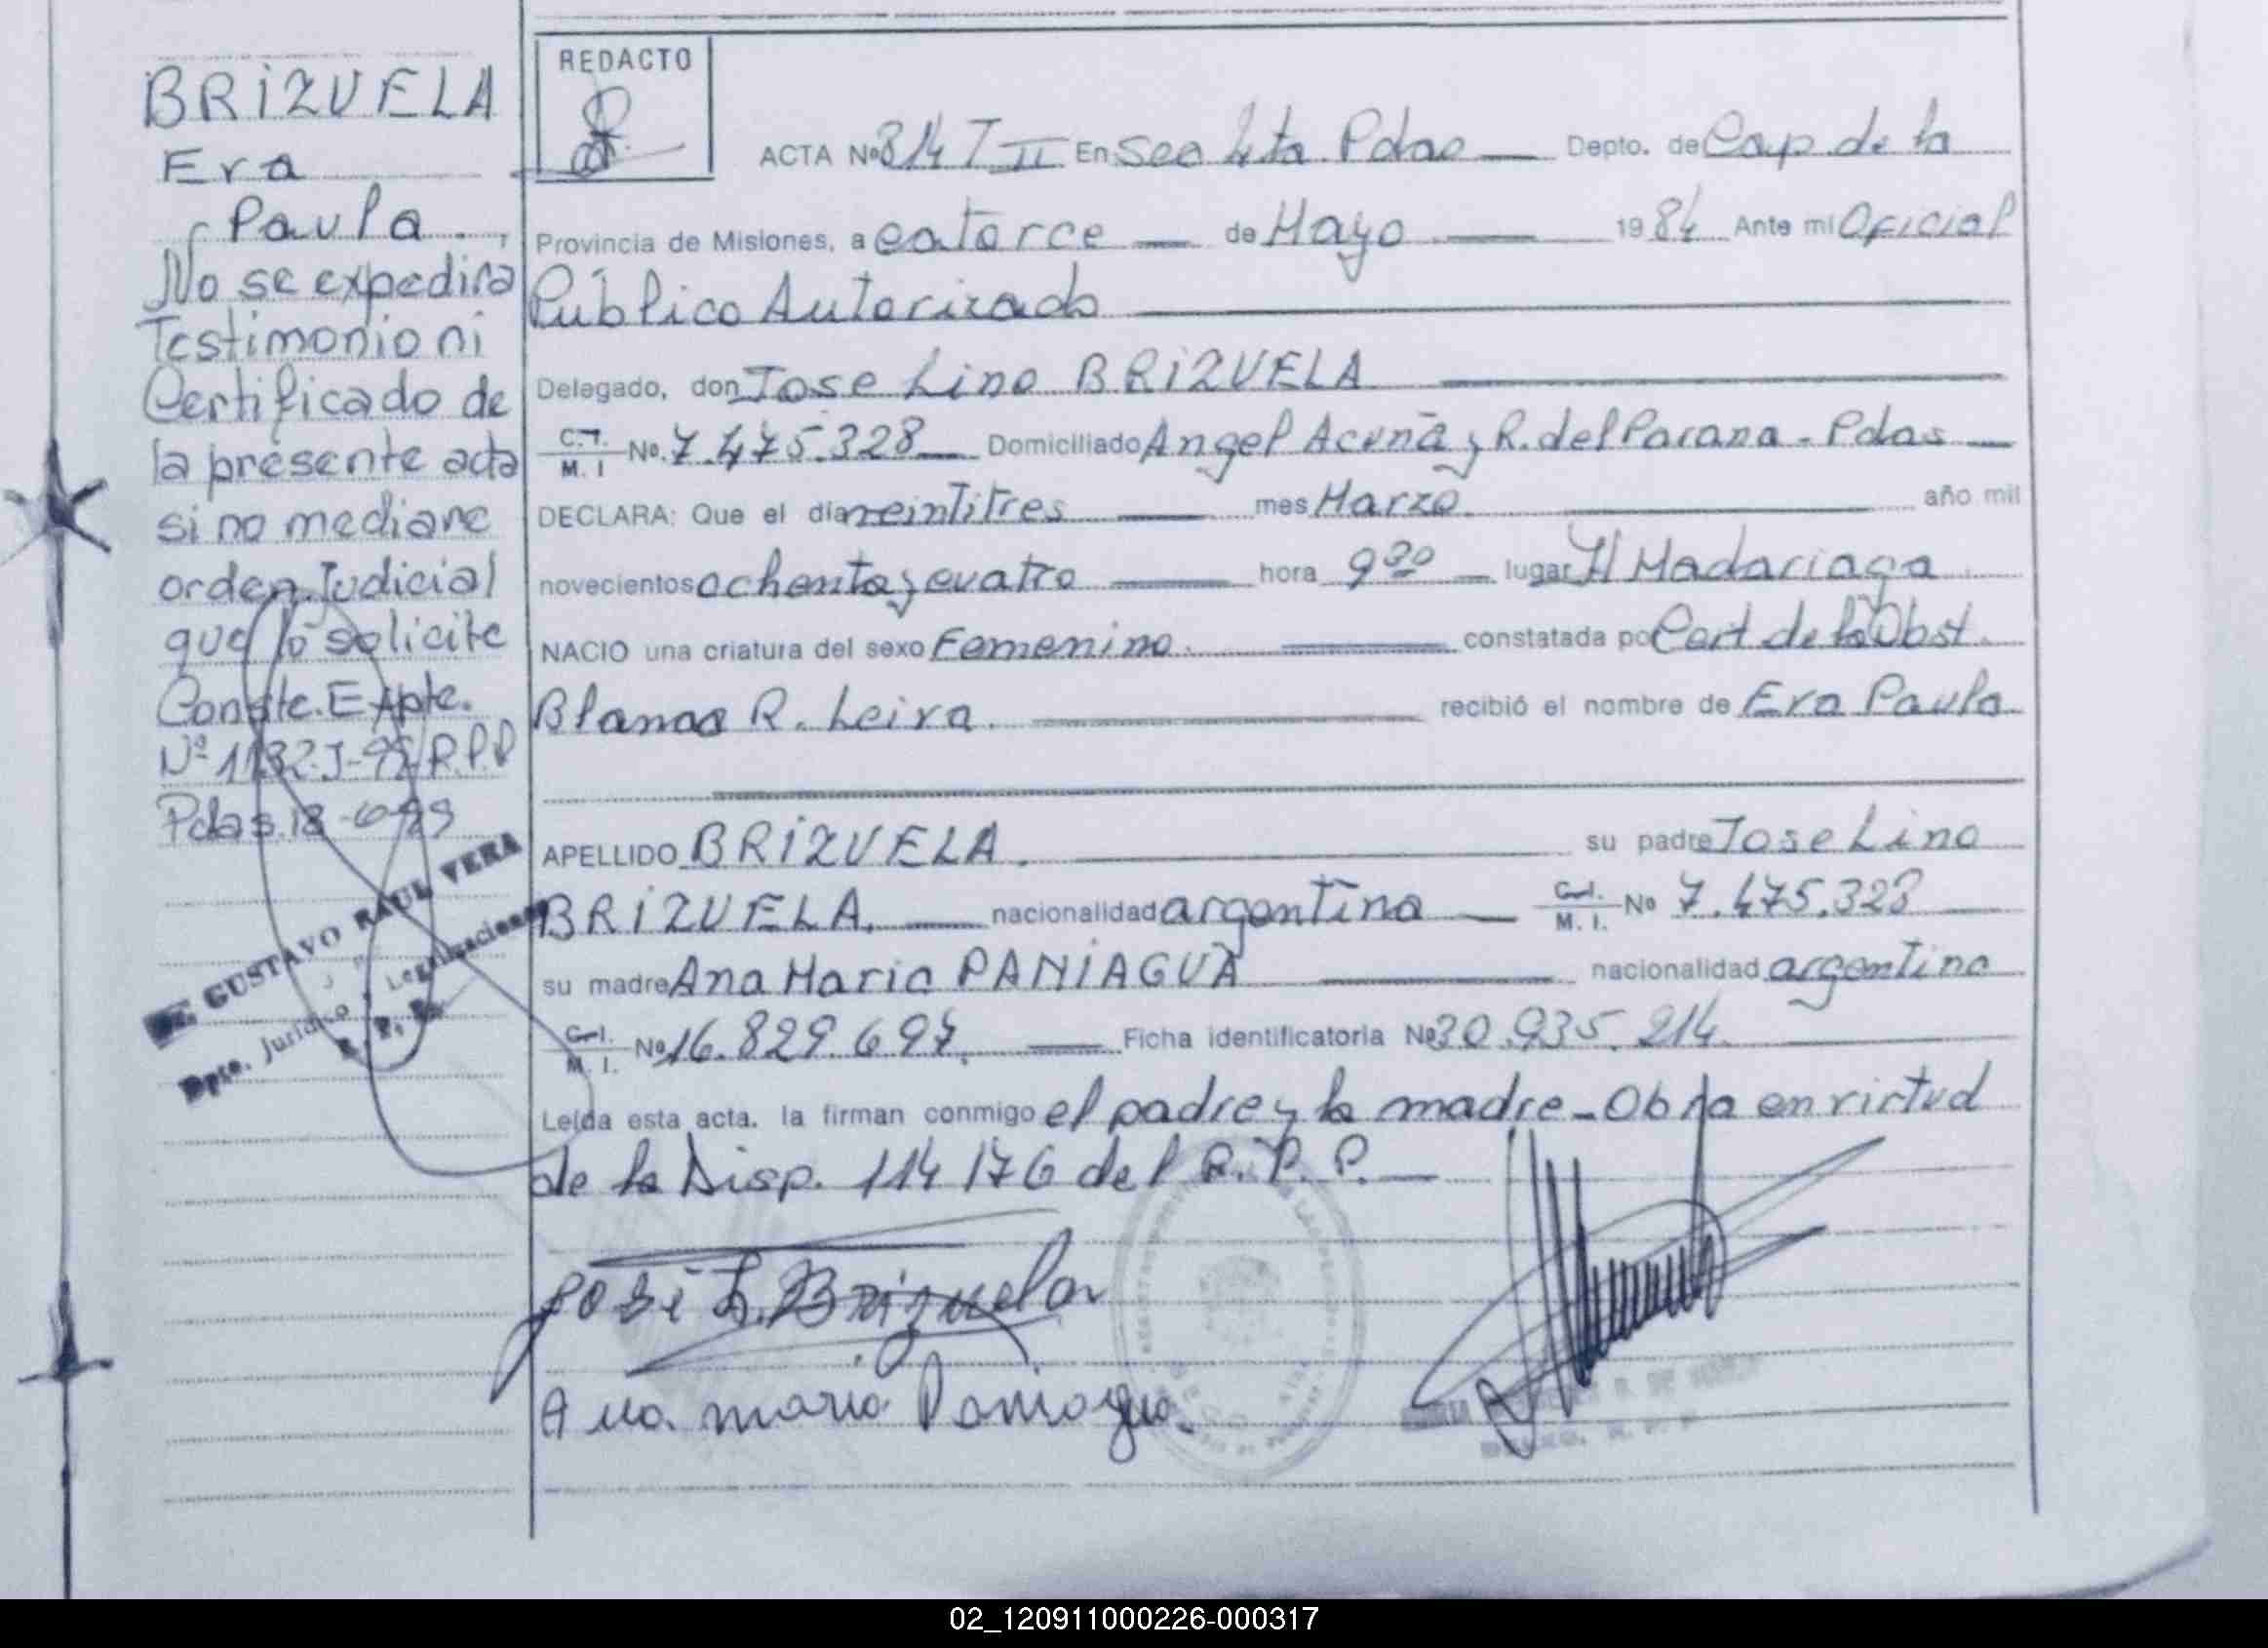 BRIZUELA
Eva
Paula.
No se expedira
Testimonio ni
Certificado de
la presente acta
si no mediare
orden Judicial
que lo solicite
Conste. Expte.
Nº 1132-J-99 R.P.P
Pdas. 18-6-99
GUSTAVO RAUL VERA
Dpto. Jurídico y Legalizaciones
R. P. P.
REDACTO
ACTA Nº 814 T II En Sec 4ta Pdas Depto. de Cap. de la
Provincia de Misiones, a catorce de Mayo 1984 Ante mi Oficial
Público Autorizado
Delegado, don Jose Lino BRIZUELA
C.I. M. I Nº. 7.475.328 Domiciliado Angel Acuña y R. del Parana - Pdas
DECLARA: Que el día veintitres mes Marzo. año mil
novecientos ochenta y cuatro hora 9 30 lugar H Madariaga
NACIO una criatura del sexo Femenino. constatada por Cert de la Obst.
Blanca R. Leiva. recibió el nombre de Eva Paula
APELLIDO BRIZUELA. su padre Jose Lino
BRIZUELA. nacionalidad argentina C.I. M. I. Nº 7.475.328
su madre Ana Maria PANIAGUA nacionalidad argentina
C.I. M. I. Nº 16.829.697. Ficha identificatoria Nº 30.935.214.
Leída esta acta. la firman conmigo el padre y la madre - Obra en virtud
de la Disp. 114/76 del R. P. P.
José L. Brizuela
Ana maria Paniagua.
02_120911000226-000317